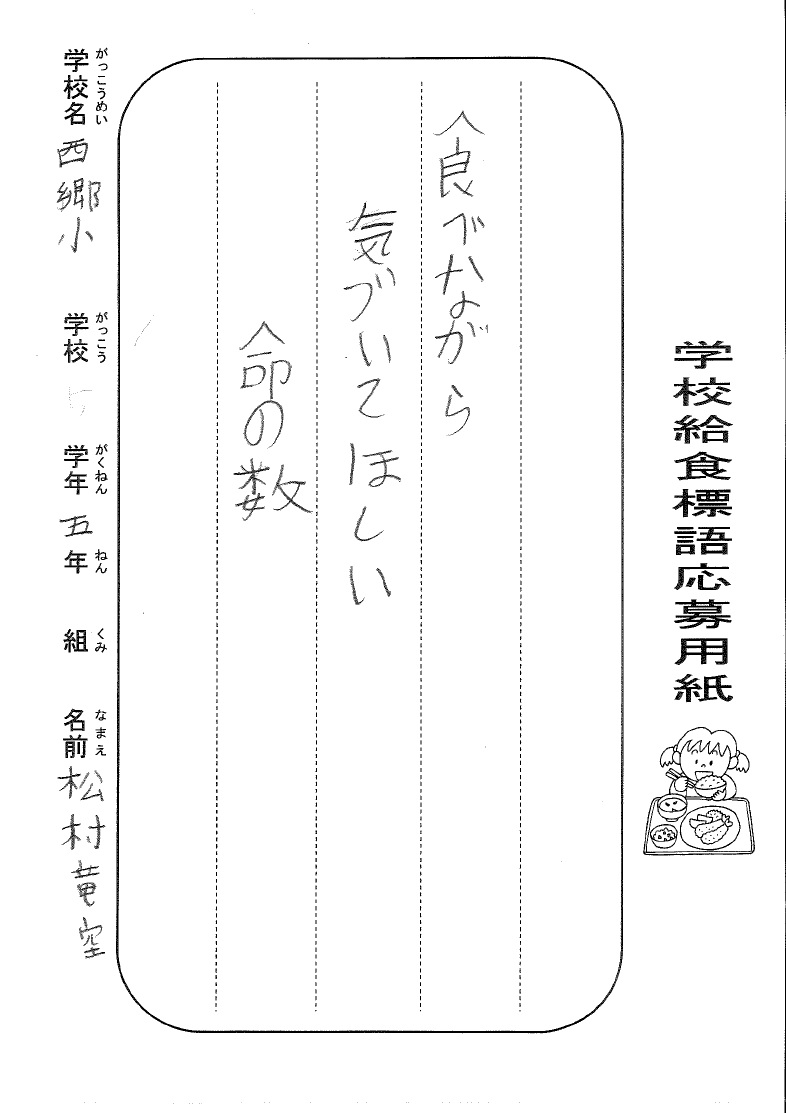 学校給食標語応募用紙
食べながら
気づいてほしい
命の数
学校名 西郷小 学校 学年 五年 組 名前 松村竜空
がっこうめい がっこう がくねん ねん くみ なまえ